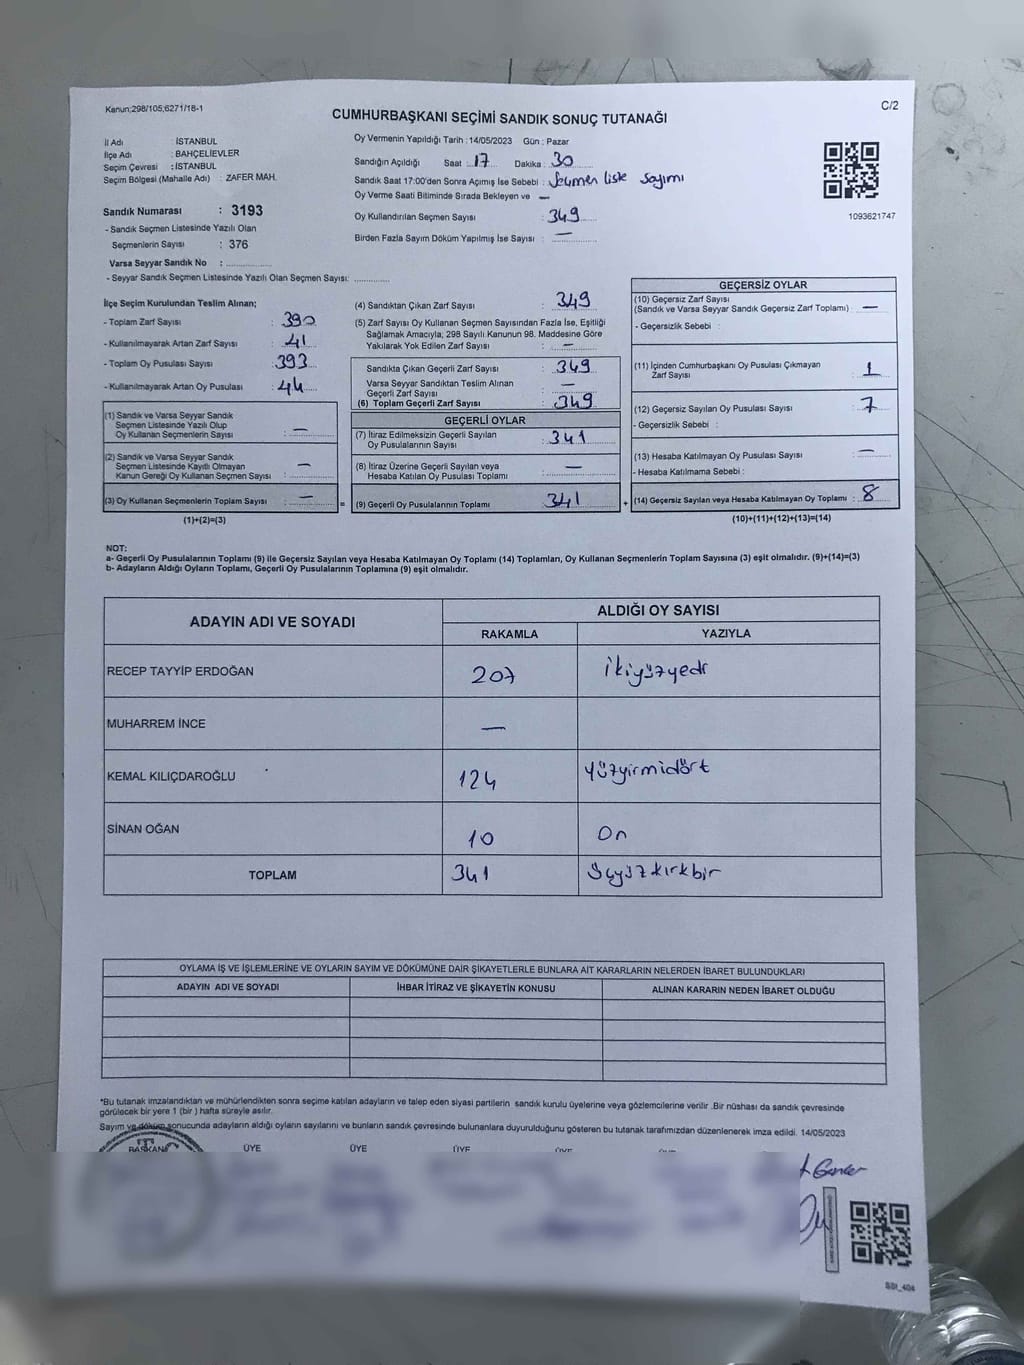 Kanun:298/105,6271/18-1
C/2
CUMHURBAŞKANI SEÇİMİ SANDIK SONUÇ TUTANAĞI
İl Adı : İSTANBUL
İlçe Adı : BAHÇELİEVLER
Seçim Çevresi : İSTANBUL
Seçim Bölgesi (Mahalle Adı) : ZAFER MAH.
Sandık Numarası : 3193
- Sandık Seçmen Listesinde Yazılı Olan
Seçmenlerin Sayısı : 376
Varsa Seyyar Sandık No :
- Seyyar Sandık Seçmen Listesinde Yazılı Olan Seçmen Sayısı:
Oy Vermenin Yapıldığı Tarih : 14/05/2023 Gün : Pazar
Sandığın Açıldığı Saat : 17 Dakika : 30
Sandık Saat 17:00'den Sonra Açımış İse Sebebi : Seçmen liste sayımı
Oy Verme Saati Bitiminde Sırada Bekleyen ve —
Oy Kullandırılan Seçmen Sayısı : 349
Birden Fazla Sayım Döküm Yapılmış İse Sayısı : —
1093621747
İlçe Seçim Kurulundan Teslim Alınan;
- Toplam Zarf Sayısı : 390
- Kullanılmayarak Artan Zarf Sayısı : 41
- Toplam Oy Pusulası Sayısı : 393
- Kullanılmayarak Artan Oy Pusulası : 44
(1) Sandık ve Varsa Seyyar Sandık
Seçmen Listesinde Yazılı Olup
Oy Kullanan Seçmenlerin Sayısı : —
(2) Sandık ve Varsa Seyyar Sandık
Seçmen Listesinde Kayıtlı Olmayan
Kanun Gereği Oy Kullanan Seçmen Sayısı : —
(3) Oy Kullanan Seçmenlerin Toplam Sayısı : — =
(1)+(2)=(3)
(4) Sandıktan Çıkan Zarf Sayısı : 349
(5) Zarf Sayısı Oy Kullanan Seçmen Sayısından Fazla İse, Eşitliği
Sağlamak Amacıyla; 298 Sayılı Kanunun 98. Maddesine Göre
Yakılarak Yok Edilen Zarf Sayısı : —
Sandıkta Çıkan Geçerli Zarf Sayısı : 349
Varsa Seyyar Sandıktan Teslim Alınan
Geçerli Zarf Sayısı : —
(6) Toplam Geçerli Zarf Sayısı : 349
GEÇERLİ OYLAR
(7) İtiraz Edilmeksizin Geçerli Sayılan
Oy Pusulalarının Sayısı : 341
(8) İtiraz Üzerine Geçerli Sayılan veya
Hesaba Katılan Oy Pusulası Toplamı : —
(9) Geçerli Oy Pusulalarının Toplamı : 341 +
GEÇERSİZ OYLAR
(10) Geçersiz Zarf Sayısı
(Sandık ve Varsa Seyyar Sandık Geçersiz Zarf Toplamı) : —
- Geçersizlik Sebebi :
(11) İçinden Cumhurbaşkanı Oy Pusulası Çıkmayan
Zarf Sayısı : 1
(12) Geçersiz Sayılan Oy Pusulası Sayısı : 7
- Geçersizlik Sebebi :
(13) Hesaba Katılmayan Oy Pusulası Sayısı : —
- Hesaba Katılmama Sebebi :
(14) Geçersiz Sayılan veya Hesaba Katılmayan Oy Toplamı : 8
(10)+(11)+(12)+(13)=(14)
NOT:
a- Geçerli Oy Pusulalarının Toplamı (9) ile Geçersiz Sayılan veya Hesaba Katılmayan Oy Toplamı (14) Toplamları, Oy Kullanan Seçmenlerin Toplam Sayısına (3) eşit olmalıdır. (9)+(14)=(3)
b- Adayların Aldığı Oyların Toplamı, Geçerli Oy Pusulalarının Toplamına (9) eşit olmalıdır.
ADAYIN ADI VE SOYADI ALDIĞI OY SAYISI
RAKAMLA YAZIYLA
RECEP TAYYİP ERDOĞAN 207 ikiyüzyedi
MUHARREM İNCE —
KEMAL KILIÇDAROĞLU 124 Yüzyirmidört
SİNAN OĞAN 10 On
TOPLAM 341 Üçyüzkırkbir
OYLAMA İŞ VE İŞLEMLERİNE VE OYLARIN SAYIM VE DÖKÜMÜNE DAİR ŞİKAYETLERLE BUNLARA AİT KARARLARIN NELERDEN İBARET BULUNDUKLARI
ADAYIN ADI VE SOYADI İHBAR İTİRAZ VE ŞİKAYETİN KONUSU ALINAN KARARIN NEDEN İBARET OLDUĞU
*Bu tutanak imzalandıktan ve mühürlendikten sonra seçime katılan adayların ve talep eden siyasi partilerin sandık kurulu üyelerine veya gözlemcilerine verilir .Bir nüshası da sandık çevresinde
görülecek bir yere 1 (bir ) hafta süreyle asılır.
Sayım ve döküm sonucunda adayların aldığı oyların sayılarını ve bunların sandık çevresinde bulunanlara duyurulduğunu gösteren bu tutanak tarafımızdan düzenlenerek imza edildi. 14/05/2023
BAŞKAN ÜYE ÜYE ÜYE